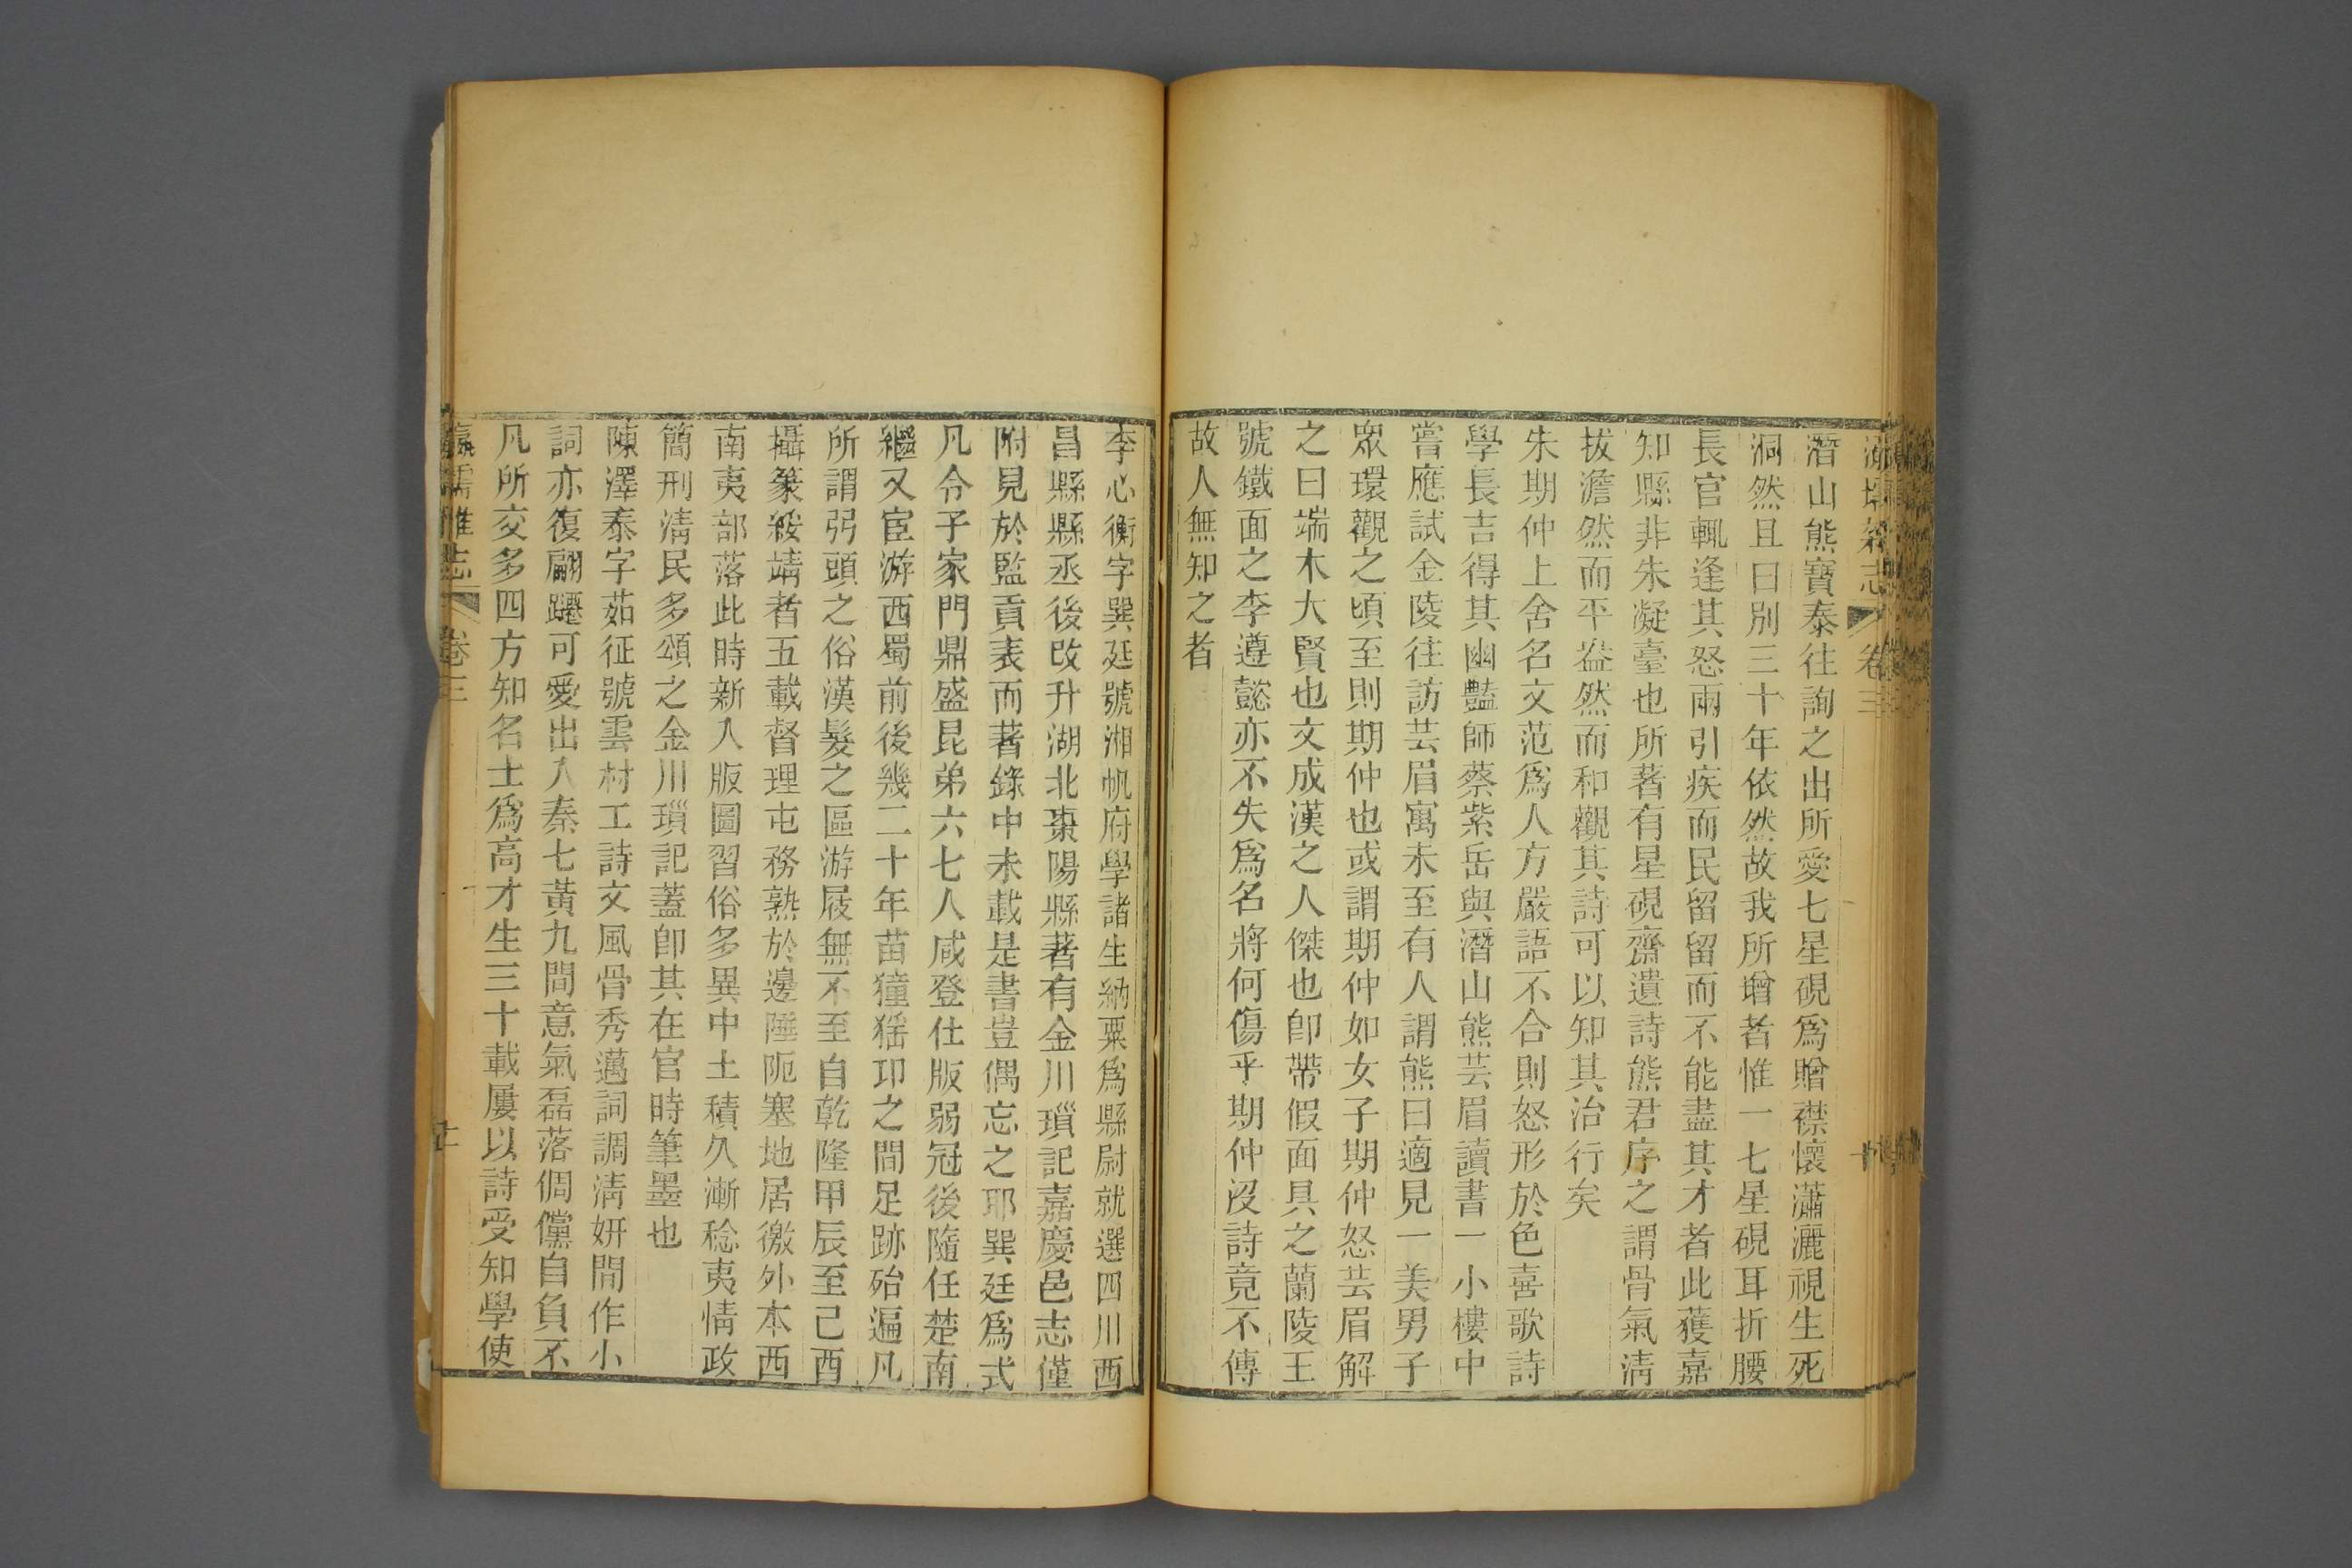 瀛壖雜志 卷三 十
潛山熊寶泰往詢之出所愛七星硯爲贈襟懷瀟灑視生死
洞然且曰別三十年依然故我所增者惟一七星硯耳折腰
長官輒逢其怒兩引疾而民留留而不能盡其才者此獲嘉
知縣非朱凝臺也所著有星硯齋遺詩熊君序之謂骨氣淸
拔澹然而平盎然而和觀其詩可以知其治行矣
朱期仲上舍名文范爲人方嚴語不合則怒形於色喜歌詩
學長吉得其幽豔師蔡紫岳與潛山熊芸眉讀書一小樓中
嘗應試金陵往訪芸眉寓未至有人謂熊曰適見一美男子
眾環觀之頃至則期仲也或謂期仲如女子期仲怒芸眉解
之曰端木大賢也文成漢之人傑也卽帶假面具之蘭陵王
號鐵面之李遵懿亦不失爲名將何傷乎期仲沒詩竟不傳
故人無知之者
李心衡字巽廷號湘帆府學諸生納粟爲縣尉就選四川西
昌縣縣丞後改升湖北棗陽縣著有金川瑣記嘉慶邑志僅
附見於監貢表而著錄中未載是書豈偶忘之耶巽廷爲式
凡令子家門鼎盛昆弟六七人咸登仕版弱冠後隨任楚南
繼又宦游西蜀前後幾二十年苗獞猺卭之間足跡殆遍凡
所謂弜頭之俗漢髮之區游屐無不至自乾隆甲辰至己酉
攝篆綏靖者五載督理屯務熟於邊陲阨塞地居徼外本西
南夷部落此時新入版圖習俗多異中土積久漸稔夷情政
簡刑淸民多頌之金川瑣記蓋卽其在官時筆墨也
陳澤泰字茹征號雲村工詩文風骨秀邁詞調淸妍間作小
詞亦復翩躚可愛出入秦七黃九間意氣磊落倜儻自負不
凡所交多四方知名士爲高才生三十載屢以詩受知學使
瀛壖雜志 卷三